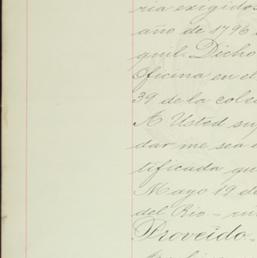 ria exigidos
año de 1796
quil. Dicho
Oficina en el
39 de la cole
A Usted su
dar me sea
tificada qu
Mayo 19 d
del Rio -
Proveido.